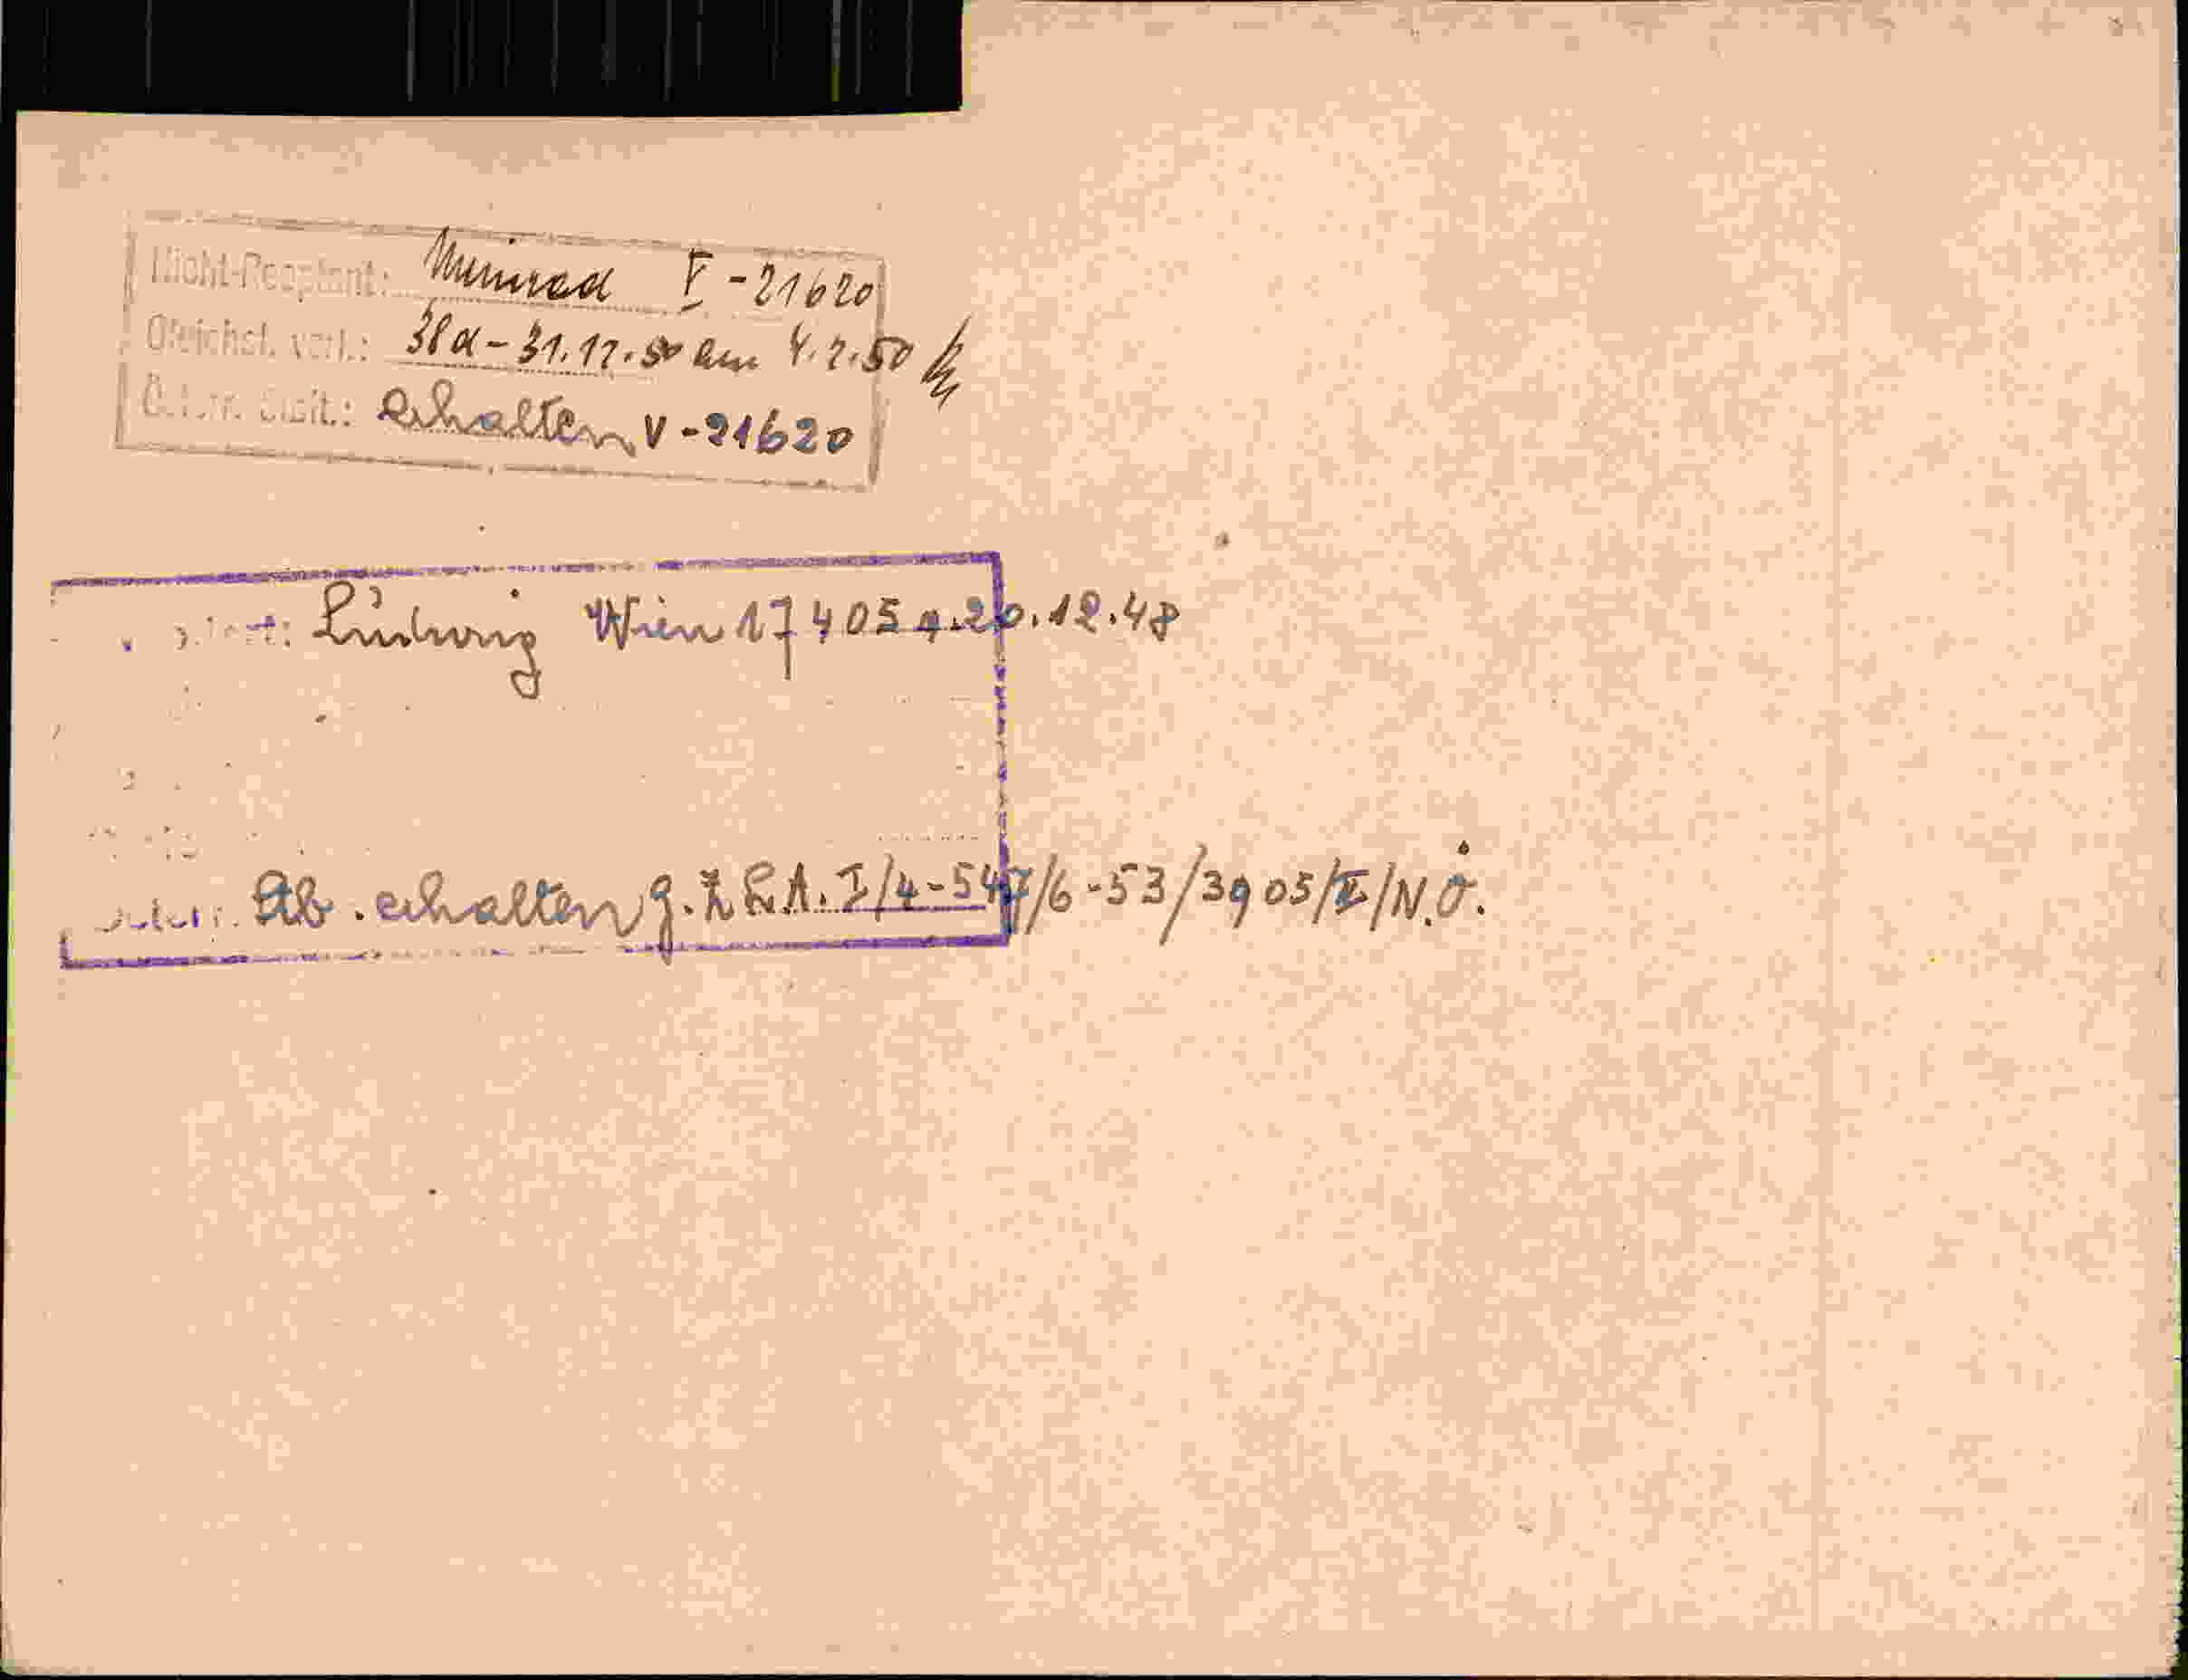 Nicht-Reoptant: Meinrad V-21620
Gleichst. verl.: 38a-31.12.50 am 4.2.50
erhalten V-21620
Ludwig Wien 174059.20.12.48
Stb. erhalten g. Z L.A. I/4-547/6-53/3905/II/N.Ö.